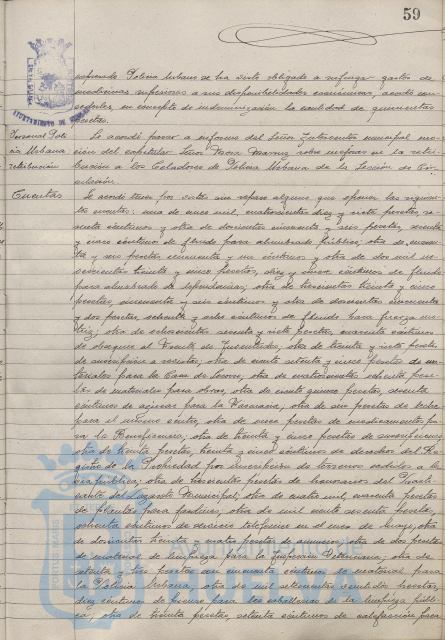 59
expresado Policia Urbano se ha visto obligado a sufragar gastos de
medicinas superiores a sus disponibilidades económicas, acordó con-
cederles, en concepto de indemnización la cantidad de quinientas
pesetas.
Personal Poli-
cia Urbana
retribución
Se acordó pasar a informe del Señor Interventor municipal mo-
ción del capitular Señor sobre mejoras en la retri-
bución a los Celadores de Policia Urbana de la Sección de Cir-
culación.
Cuentas
Se acordó tener por vistas sin reparo alguno que oponer las siguien-
tes cuentas: una de once mil, cuatrocientas diez y siete pesetas, se-
senta céntimos y otra de doscientas cincuenta y seis pesetas, sesenta
y cinco céntimos de fluido para alumbrado público; otra de
y seis pesetas, cincuenta y un céntimos y otra de dos mil
treinta y cinco pesetas, diez y nueve céntimos de fluido
para alumbrado de dependencias; otra de trescientas treinta y cinco
pesetas, cincuenta y seis céntimos y otra de doscientas cincuenta
y dos pesetas, setenta y siete céntimos de fluido para fuerza mo-
triz; otra de ochocientas sesenta y siete pesetas, cuarenta céntimos
de obsequios al Frente de Juventudes, otra de treinta y siete pesetas
de suscripción a revistas; otra de ciento setenta y cinco pesetas de ma-
teriales para la Casa de Socorro, otra de cuatrocientas ochenta pese-
tas de materiales para obras, otra de ciento quince pesetas, sesenta
céntimos de azúcar para la otra de seis pesetas de leche
para el mismo centro, otra de once pesetas de medicamentos pa-
ra la Beneficencia; otra de treinta y cinco pesetas de suscripciones
otra de treinta pesetas, treinta y cinco céntimos de derechos del Re-
gistro de la Propiedad por inscripción de terrenos cedidos a la
via pública; otra de trescientas pesetas de honorarios del Practi-
cante del Lazareto Municipal; otra de cuatro mil, cuarenta pesetas
de plantas para jardines, otra de mil ciento sesenta pesetas,
ochenta céntimos de servicio telefónico en el mes de Mayo; otra
de doscientas treinta y cuatro pesetas de anuncios; otra de dos pesetas
de material de limpieza para la Inspección Veterinaria; otra de
setenta y tres pesetas con cincuenta céntimos de material para
la Policia Urbana; otra de mil setecientas ochenta pesetas,
diez céntimos de pienso para las caballerias de la limpieza públi-
ca; otra de treinta pesetas, setenta céntimos de calefacción para